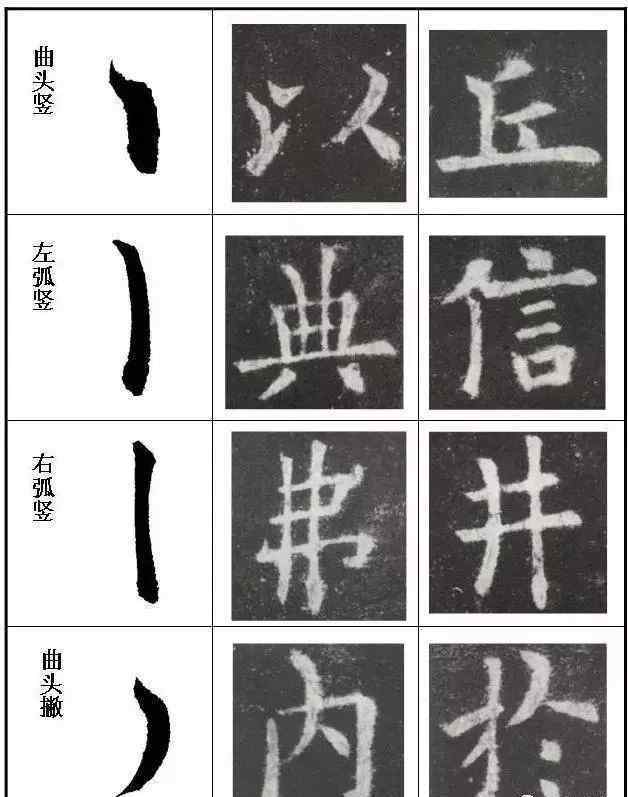 曲头竖
以
丘
左弧竖
典
信
右弧竖
弗
井
曲头撇
内
於